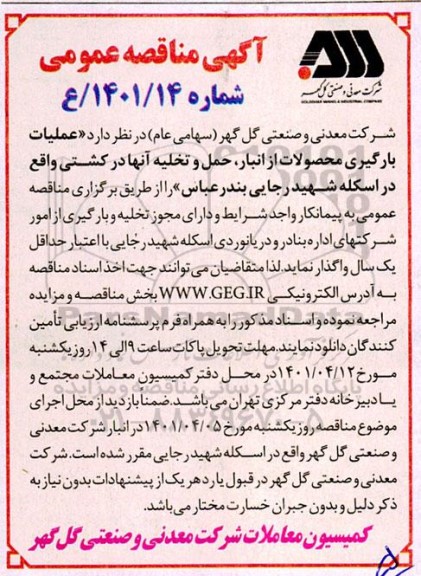 شرکت معدنی و صنعتی گل گهر
GOLGOHAR MINING & INDUSTRIAL COMPANY
آگهی مناقصه عمومی
شماره ۱۴۰۱/۱۴/ع
شرکت معدنی و صنعتی گل گهر (سهامی عام) در نظر دارد «عملیات
بارگیری محصولات از انبار، حمل و تخلیه آنها در کشتی واقع
در اسکله شهید رجایی بندرعباس» را از طریق برگزاری مناقصه
عمومی به پیمانکار واجد شرایط و دارای مجوز تخلیه و بارگیری از امور
شرکتهای اداره بنادر و دریانوردی اسکله شهید رجایی با اعتبار حداقل
یک سال واگذار نماید. لذا متقاضیان می توانند جهت اخذ اسناد مناقصه
به آدرس الکترونیکی WWW.GEG.IR بخش مناقصه و مزایده
مراجعه نموده و اسناد مذکور را به همراه فرم پرسشنامه ارزیابی تأمین
کنندگان دانلود نمایند. مهلت تحویل پاکات ساعت ۹ الی ۱۴ روز یکشنبه
مورخ ۱۴۰۱/۰۴/۱۲ در محل دفتر کمیسیون معاملات مجتمع و
یا دبیرخانه دفتر مرکزی تهران می باشد. ضمنا بازدید از محل اجرای
موضوع مناقصه روز یکشنبه مورخ ۱۴۰۱/۰۴/۰۵ در انبار شرکت معدنی
و صنعتی گل گهر واقع در اسکله شهید رجایی مقرر شده است. شرکت
معدنی و صنعتی گل گهر در قبول یا رد هر یک از پیشنهادات بدون نیاز به
ذکر دلیل و بدون جبران خسارت مختار می باشد.
کمیسیون معاملات شرکت معدنی و صنعتی گل گهر